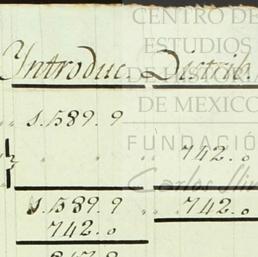 CENTRO DE
ESTUDIOS
DE HISTORIA
DE MEXICO
FUNDACIÓN
Carlos Slim
Introduc. Distrib.
1.589.9
742.0
1.589.9 742.0
742.0